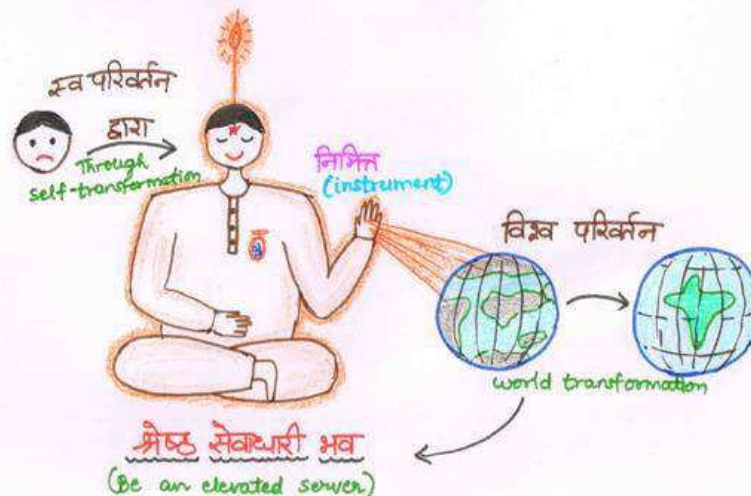 स्व परिवर्तन
द्वारा
Through
self-transformation
निमित्त
(instrument)
विश्व परिवर्तन
world transformation
श्रेष्ठ सेवाधारी भव
(Be an elevated server)